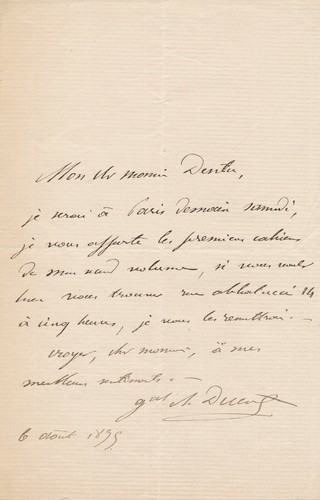 Mon cher monsieur Dentu,
je serai à Paris demain samedi,
je vous apporte les premiers cahiers
de mon volume, si vous voulez
bien vous trouver rue 14
à cinq heures, je vous les remettrai. –
croyez, cher monsieur, à mes
meilleurs sentiments. –
gal A. Ducrot
6 août